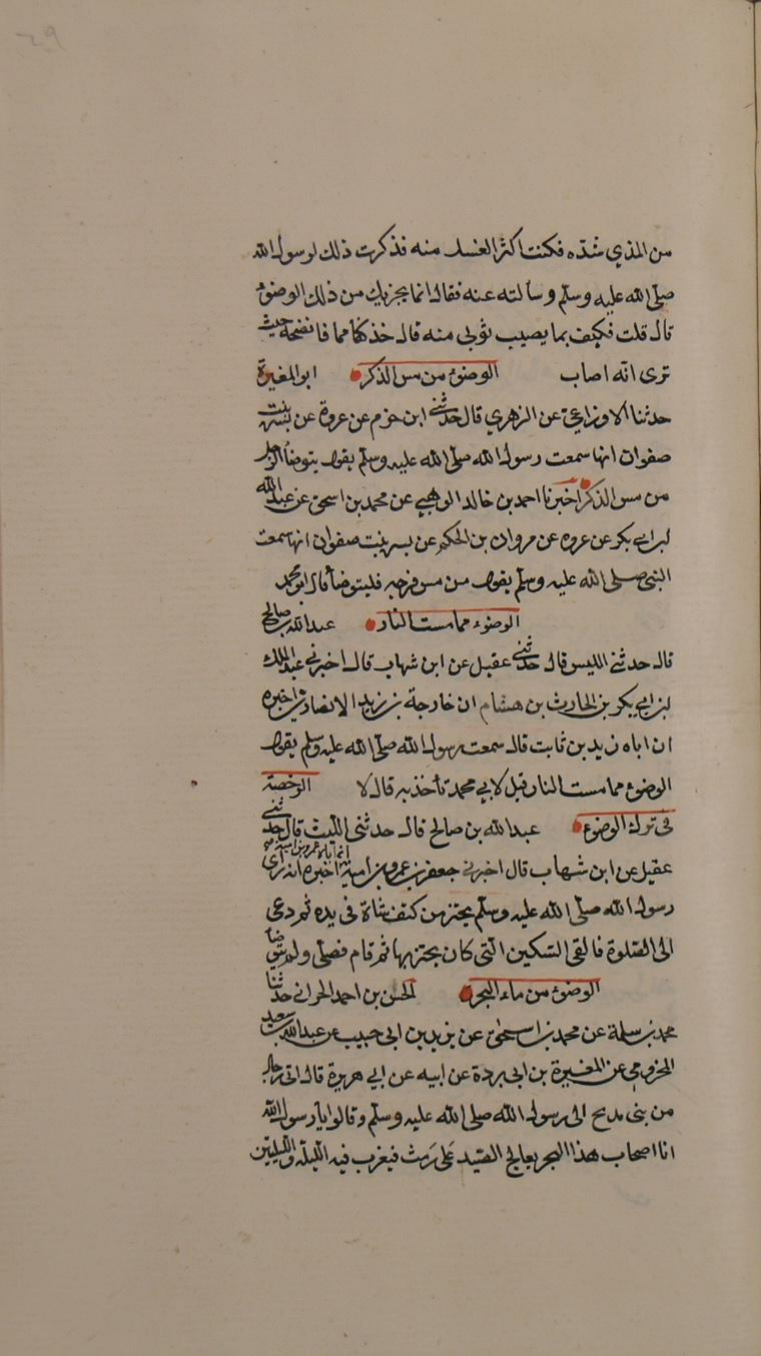 من المذي شدّه فكنت اكثر الغسل منه فذكرت ذلك لرسول الله
صلّى الله عليه وسلّم وسألته عنه فقال انما يجزيك من ذلك الوضوء
قال قلت فكيف بما يصيب ثوبي منه قال خذ كفا مما فانضحه حيث
ترى انّه اصاب الوضوء من مس الذكر ابو المغيرة
حدثنا الاوزاعي عن الزهري قال حدثنى ابن حزم عن عروة عن بسرة بنت
صفوان انها سمعت رسول الله صلّى الله عليه وسلّم يقول يتوضأ الرجل
من مس الذكر اخبرنا احمد بن خالد الوهبي عن محمد بن اسحق عن عبد الله
ابن ابي بكر عن عروه عن مروان بن الحكم عن بسر بنت صفوان انها سمعت
النبي صلى الله عليه وسلّم يقول من مس فرجه فليتوضأ قال ابو محمد
الوضوء مما مست النار عبد الله بن صالح
قال حدثني الليس قال حدثني عقيل عن ابن شهاب قال اخبرني عبد الملك
ابن ابي بكر بن الحارث بن هشام ان خارجة بن زيد الانصاري اخبره
ان اباه زيد بن ثابت قال سمعت رسول الله صلّى الله عليه وسلم يقول
الوضوء مما مست النار قيل لابي محمد تأخذ به قال لا الرخصة
في ترك الوضوء عبد الله بن صالح قال حدثني الليث قال حدثني
عقيل عن ابن شهاب قال اخبرني جعفر بن عمرو بن امية ان اباه عمرو بن امية اخبره انه رأى
رسول الله صلّى الله عليه وسلّم يحتز من كتف شاة في يده ثم دعى
الى الصّلوة فالقى السّكين الّتي كان يحتز بها ثم قام فصلّى ولم يتوضأ
الوضوء من ماء البحر الحسن بن احمد الحراني حدثنا
محمد بن سلمة عن محمد بن اسحق عن يزيد بن ابي حبيب عن عبد الله بن سعيد
المخزومي عن المغيرة بن ابي بردة عن ابيه عن ابي هريرة قال اتى رجال
من بني مدلج الى رسول الله صلّى الله عليه وسلّم وقالوا يا رسول الله
انا اصحاب هذا البحر يعالج الصّيد على رَمث فيغرب فيه اللّيلة والليلتين